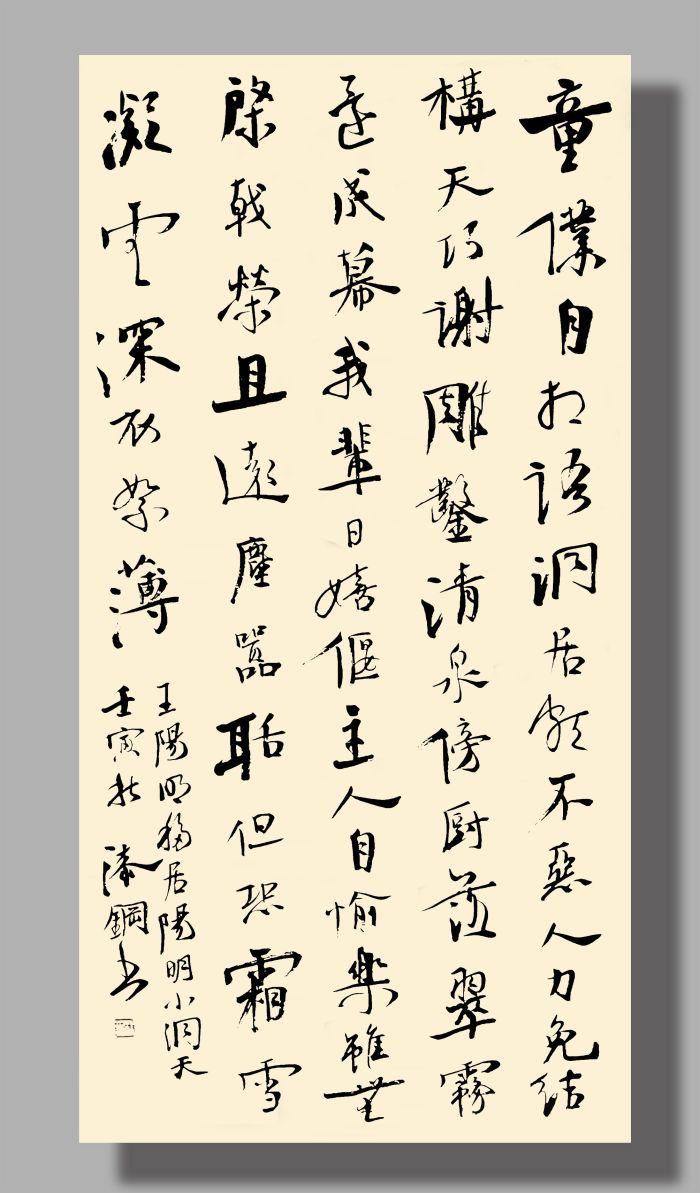 童僕自相語洞居頗不惡人力免結
構天巧謝雕鑿清泉傍厨落翠霧
還成幕我輩日嬉偃主人自愉樂雖無
棨戟榮且遠塵囂聒但恐霜雪
凝雲深衣絮薄
王陽明移居陽明小洞天
壬寅秋漆鋼书